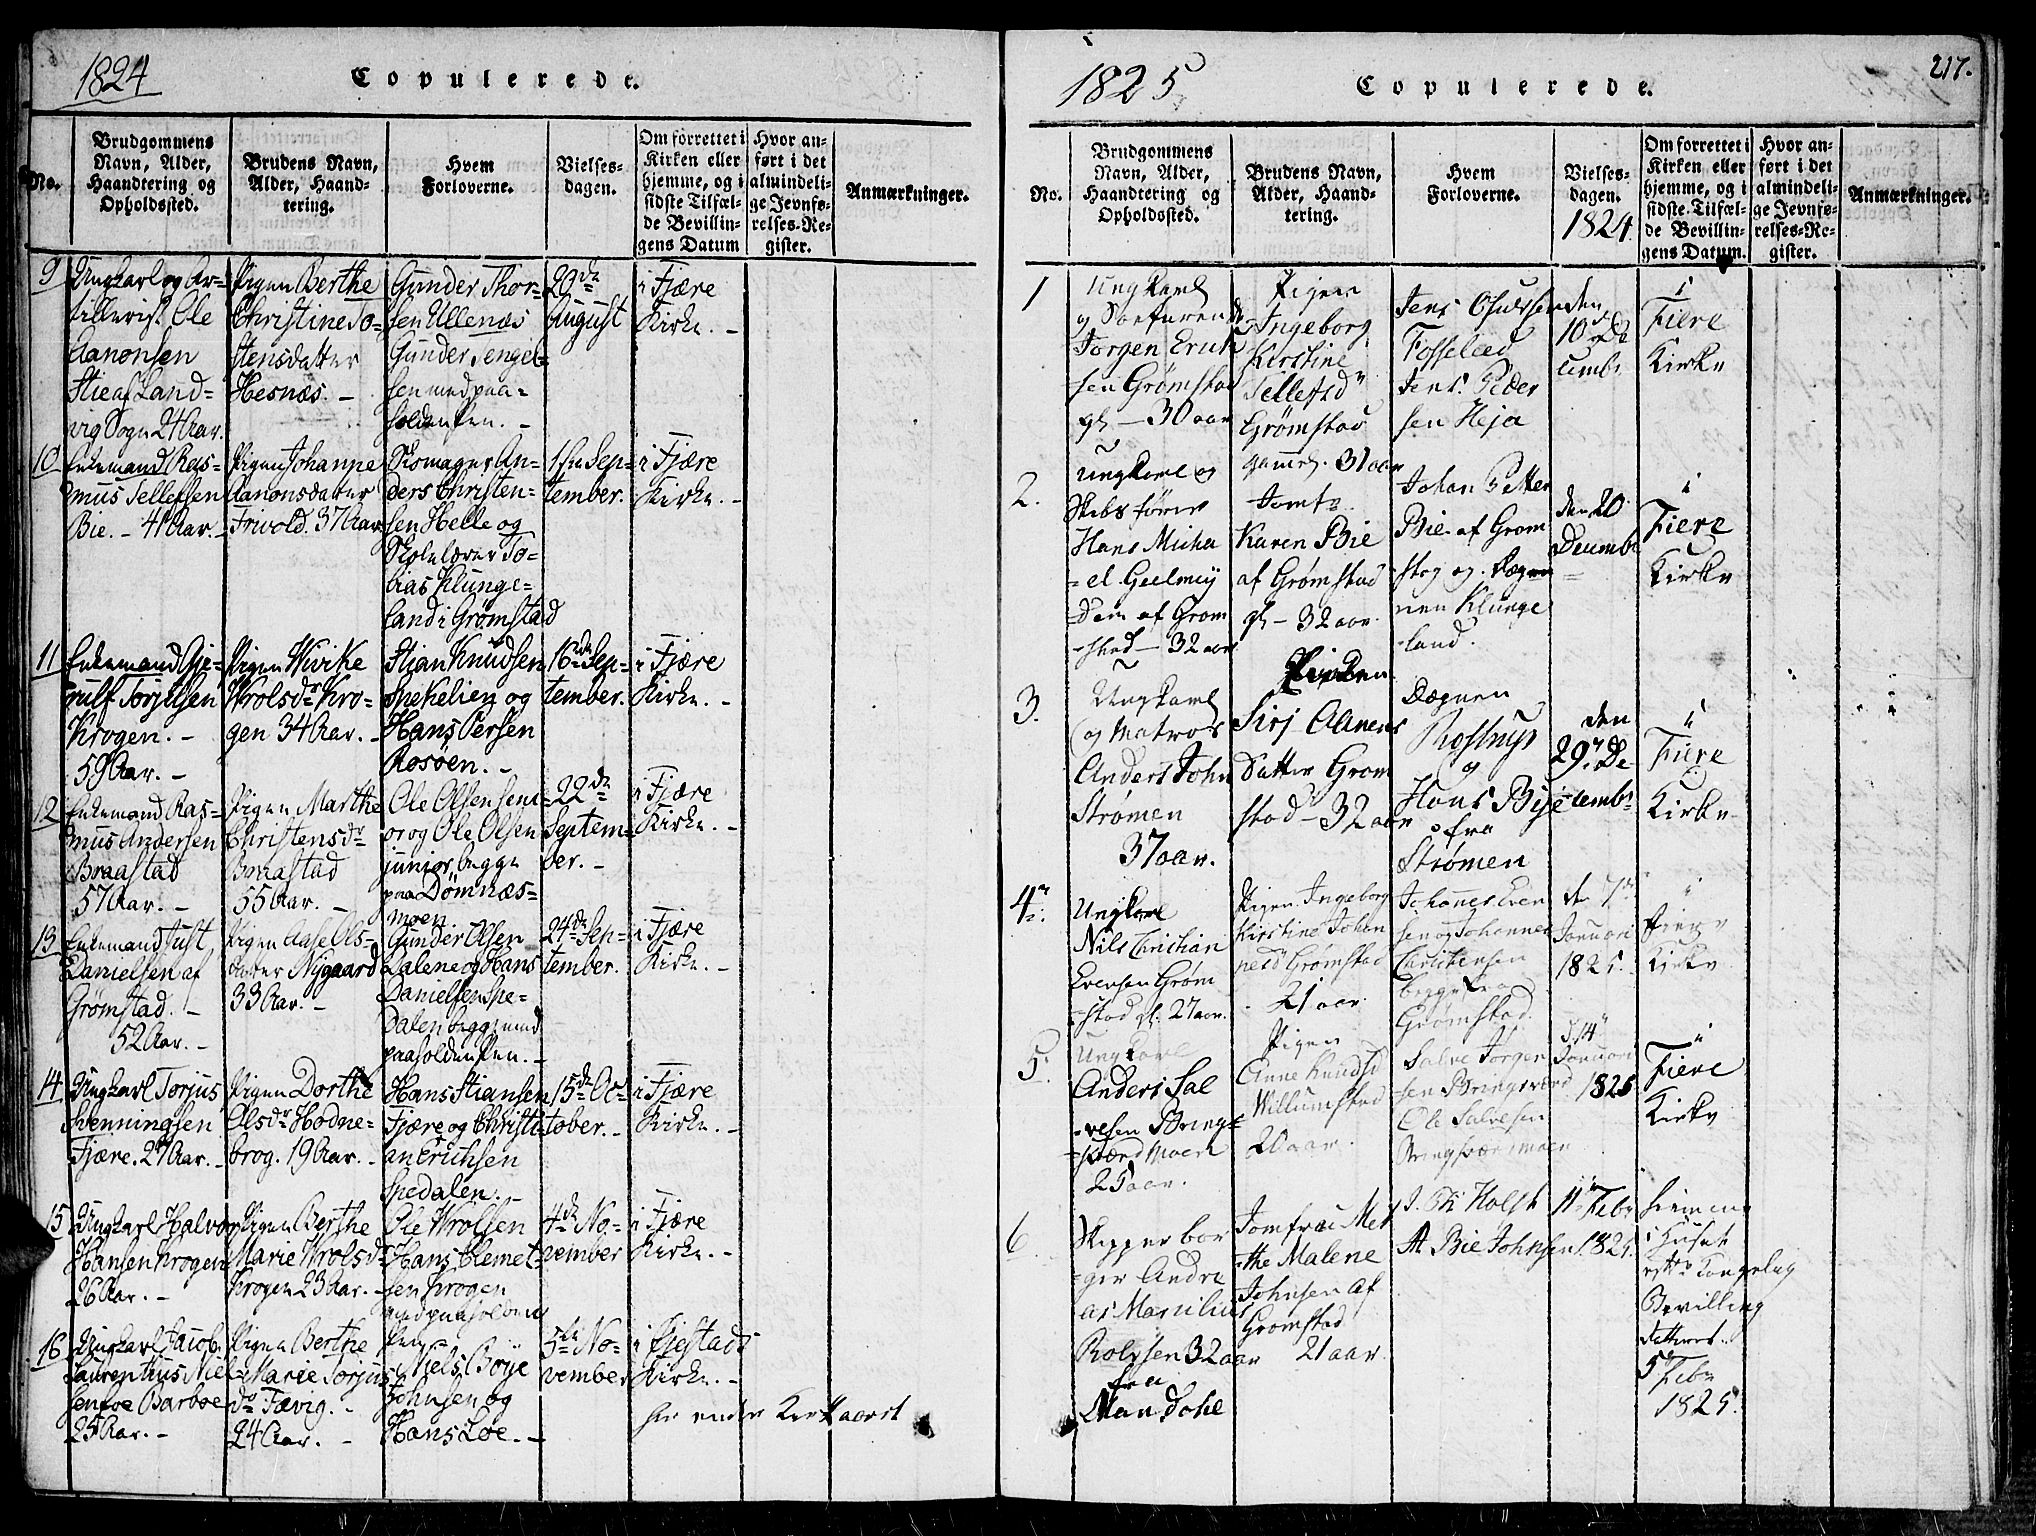 1824
Copulerede.
No.
Brudgommens
Navn, Alder,
Haandtering og
Opholdssted.
Brudens Navn,
Alder, Haand-
tering.
Hvem
Forloverne.
Vielses-
dagen.
Om forrettet i
Kirken eller
hjemme, og i
sidste Tilfæl-
de Bevillin-
gens Datum
Hvor an-
ført i det
almindeli-
ge Jevnfø-
relses-Re-
gister.
Anmærkninger.
9
Ungkarl og Ar-
tillerist Ole
Aanonsen
Stie af Land-
vig Sogn 24 Aar.
Pigen Berthe
Christine To-
stensdatter
Hesnæs. -
Gunder Thor-
sen Ullenæs
Gunder Tengel-
sen med paa-
holden Pen. -
29de
August
i Fjære
Kirke. -
10
Enkemand Ras-
mus Tellefsen
Bie. - 41 Aar. -
Pigen Johanne
Aanonsdatter
Frivold. 37 Aar
Skomager An-
ders Christen-
sen Helle og
Skolelærer To-
bias Klunge-
land i Grømstad
1ste Sep-
tember.
i Fjære
Kirke. -
11
Enkemand Gje-
rulf Torjusen
Krogen. -
59 Aar. -
Pigen Wivike
Wrolsdr Kro-
gen 34 Aar. -
Stian Knudsen
Spekelien og
Hans Persen
Rosøen. -
16de Sep-
tember.
i Fjære
Kirke. -
12
Enkemand Ras-
mus Andersen
Braastad
57 Aar. -
Pigen Marthe
Christensdr
Braastad
55 Aar. -
Ole Olsen seni-
or og Ole Olsen
junior, begge
paa Dømnæs-
moen
22de
Septem-
ber. -
i Fjære
Kirke. -
13
Enkemand Just
Danielsen af
Grømstad. -
52 Aar. -
Pigen Aase Ols-
datter Nygaard
33 Aar. -
Gunder Olsen
Dalene og Hans
Danielsen Spe-
dalen begge med
paaholden Pen. -
24de Sep-
tember.
i Fjære
Kirke. -
14
Ungkarl Torjus
Henningsen
Fjære. 27 Aar. -
Pigen Dorthe
Olsdr Hodne-
brog. 19 Aar. -
Hans Stiansen
Fjære og Christi-
an Erichsen
Spedalen. -
15de Oc-
tober. -
i Fjære
Kirke. -
15
Ungkarl Halvor
Hansen Krogen
26 Aar. -
Pigen Berthe
Marie Wrolsdr
Krogen 23 Aar. -
Ole Wrolsen
Hans Clemet-
sen Krogen
med paaholden
Pen. -
4de No-
vember
i Fjære
Kirke. -
16
Ungkarl Jacob
Laurenthius Niel-
sen Barboe
25 Aar. -
Pigen Berthe
Marie Torjus
dr Fævig. -
24 Aar. -
Niels Boye
Johnsen og
Hans Løe. -
5te No-
vember
i Fjestads
Kirke. -
1825
Copulerede.
217.
No.
Brudgommens
Navn, Alder,
Haandtering og
Opholdssted.
Brudens Navn,
Alder, Haand-
tering.
Hvem
Forloverne.
Vielses-
dagen.
1824
Om forrettet i
Kirken eller
hjemme, og i
sidste Tilfæl-
de Bevillin-
gens Datum.
Hvor an-
ført i det
almindeli-
ge Jevnfø-
relses-Re-
gister.
Anmærkninger.
1
Ungkarl
og Søefarende
Jørgen Erik
sen Grømstad
gl - 30 aar
Pigen
Ingeborg
Kirstine
Tellefsd
Grømstad
gammel. 31 aar
Jens Osulfsen
Fosseleed
Jens Peder
sen Heja
den
10de De
cembr
i
Fiere
Kirke
2.
Ungkarl og
Skibsfører
Hans Micha
-el Geelmuy
den af Grom
-stad - 32 aar
Jomfr
Karen Bie
af Grømstad
gl - 32 aar.
Johan Petter
Bie af Grom
-stog og Dægne
nen Klunge
-land.
den 20
Decembr
i
Fiere
Kirke
3.
Ungkarl
og Matros
Anders John
Strømen
37 aar.
Pigen
Sirj Aanens
datter Grom
stad - 32 aar
Dægnen
Rostrup
og
Hans Bije
fra
Strømen
den
29. De
cembr
i
Fiere
Kirke
4.
Ungkarl
Nils Christian
Evensen Grøm
-stad gl. 27 aar.
Pigen Ingeborg
Kirstine Johan
nesd Grømstad
21 aar
Johanes Even
sen og Johannes
Christensen
begge fra
Grømstad.
d 7
Januari
1825.
i
Fiere
Kirke
5.
Ungkarl
Anders Sal
-vesen Brings-
-værd moen
25 aar.
Pigen
Anne Knudsd
Willumstad
20 aar.
Salve Jørgen
sen Bringsværd
Ole Salvesen
Bringsværsmoen
d 14
Januari
1825
i
Fiere
Kirke
6
Skipper bor
-ger Andre
as Manilius
Rolvsen 32 aar
fra
Mandahl
Jomfrue Met
-the Malene
Johnsen af
Gromstad
21 aar.
J. Ch Holst
A Bie Johnsen
11 Febr
1825.
hiemme
i Huset
efter Kongelig
Bevilling
datteret
5 Febr
1825.